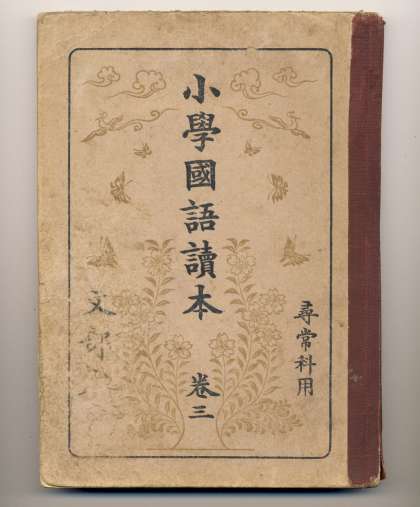 尋常科用
小學國語讀本 卷三
文部